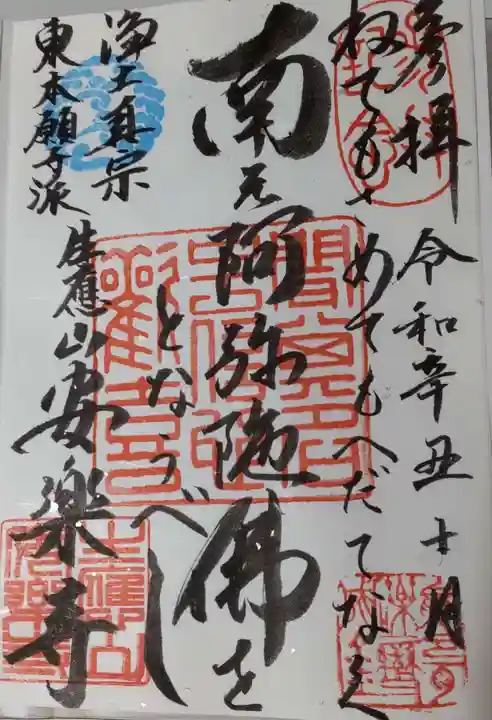 参拝
令和辛丑十月
ねてもさめてもへだてなく
南無阿弥陀佛を
となうべし
浄土真宗
東本願寺派
生應山安楽寺